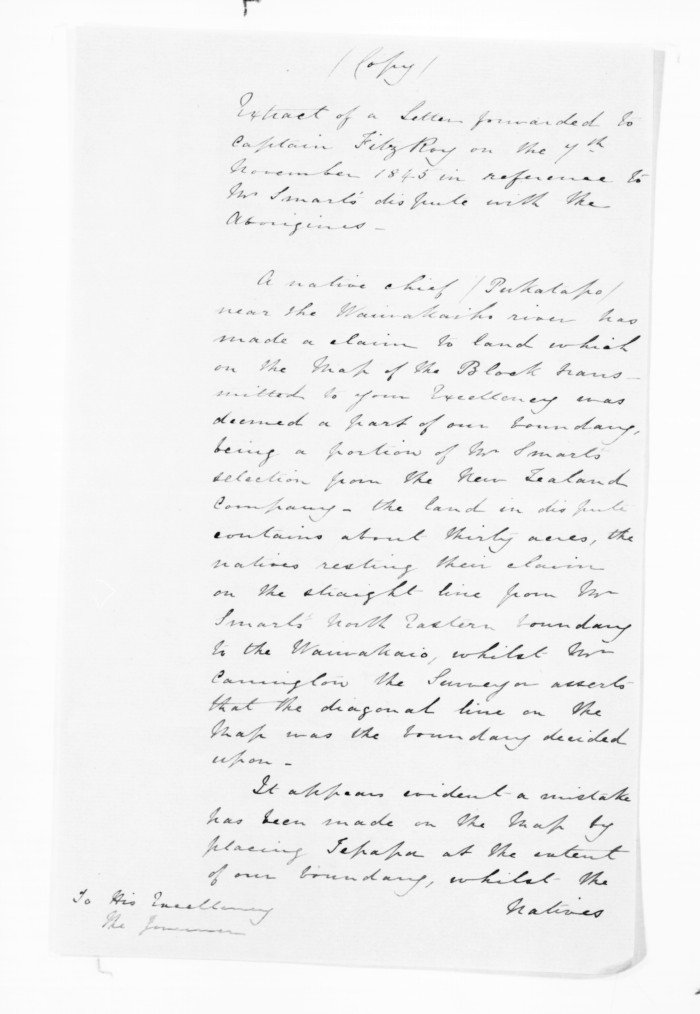 (Copy)
Extract of a Letter forwarded to
Captain FitzRoy on the 7th
November 1845 in reference to
Mr Smart's dispute with the
Aborigines -
A native chief (Pukatapo)
near the Waiwakaiho river has
made a claim to land which
on the Map of the Block trans-
mitted to your Excellency was
deemed a part of our boundary,
being a portion of Mr Smart's
selection from the New Zealand
Company - the land in dispute
contains about thirty acres, the
natives resting their claim
on the straight line from Mr
Smart's North Eastern boundary
to the Waiwakaio, whilst Mr
Carrington the Surveyor asserts
that the diagonal line on the
Map was the boundary decided
upon -
It appears evident a mistake
has been made on the Map by
placing Tepapa at the extent
of our boundary, whilst the
Natives
To His Excellency
The Governor